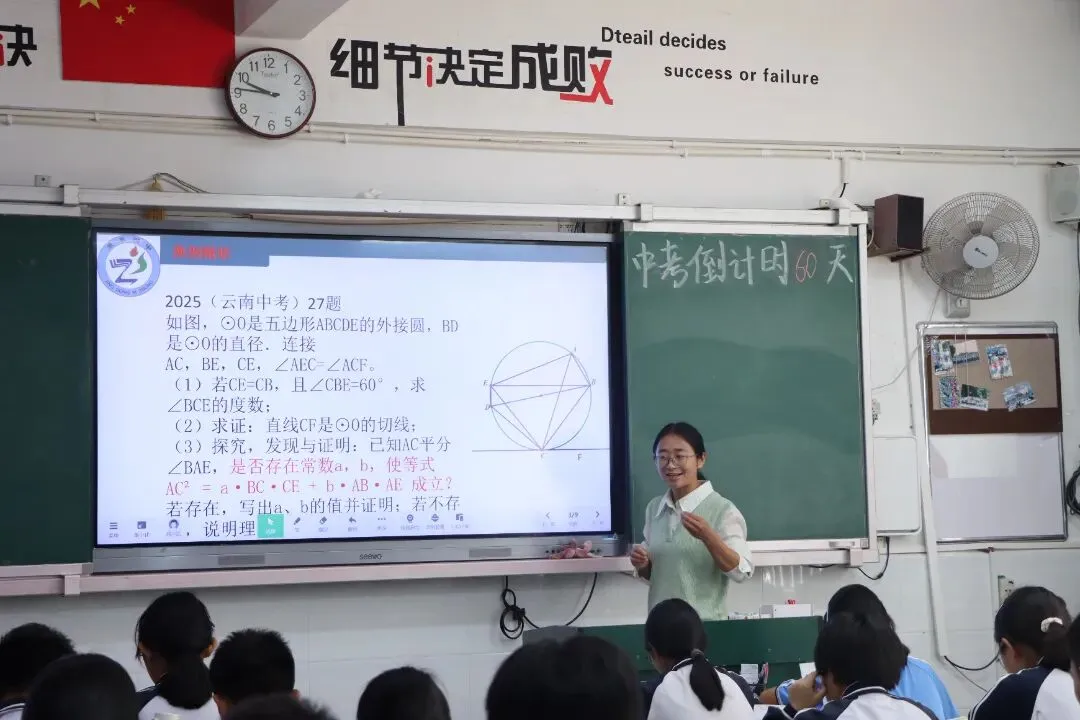 决
细节决定成败
Dteail decides
success or failure
中考倒计时60天
2025（云南中考）27题
如图，⊙O是五边形ABCDE的外接圆，BD
是⊙O的直径．连接
AC，BE，CE，∠AEC=∠ACF。
（1）若CE=CB，且∠CBE=60°，求
∠BCE的度数；
（2）求证：直线CF是⊙O的切线；
（3）探究，发现与证明：已知AC平分
∠BAE，是否存在常数a，b，使等式
AC² = a·BC·CE + b·AB·AE 成立？
若存在，写出a、b的值并证明；若不存
，说明理
1/9
seewo
12
1
2
3
4
5
6
7
8
9
10
11